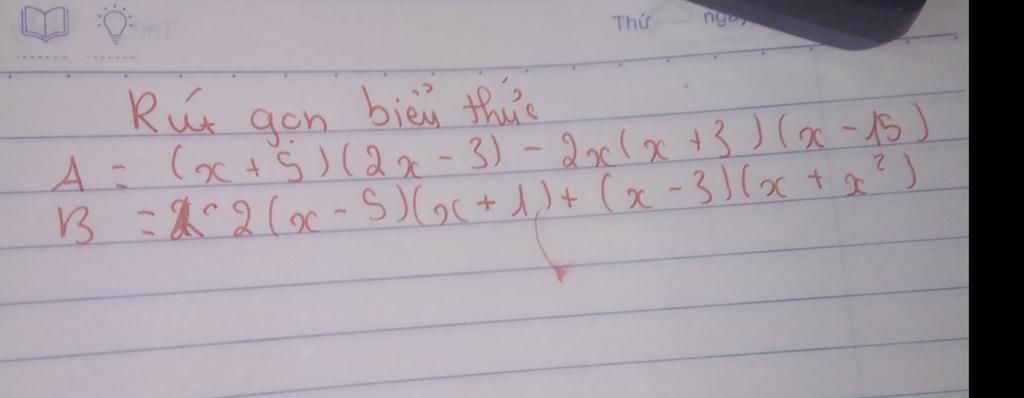 Thứ ngày
Rút gọn biểu thức
A = (x + 5)(2x - 3) - 2x(x + 3)(x - 15)
B = 2(x - 5)(x + 1) + (x - 3)(x + x²)